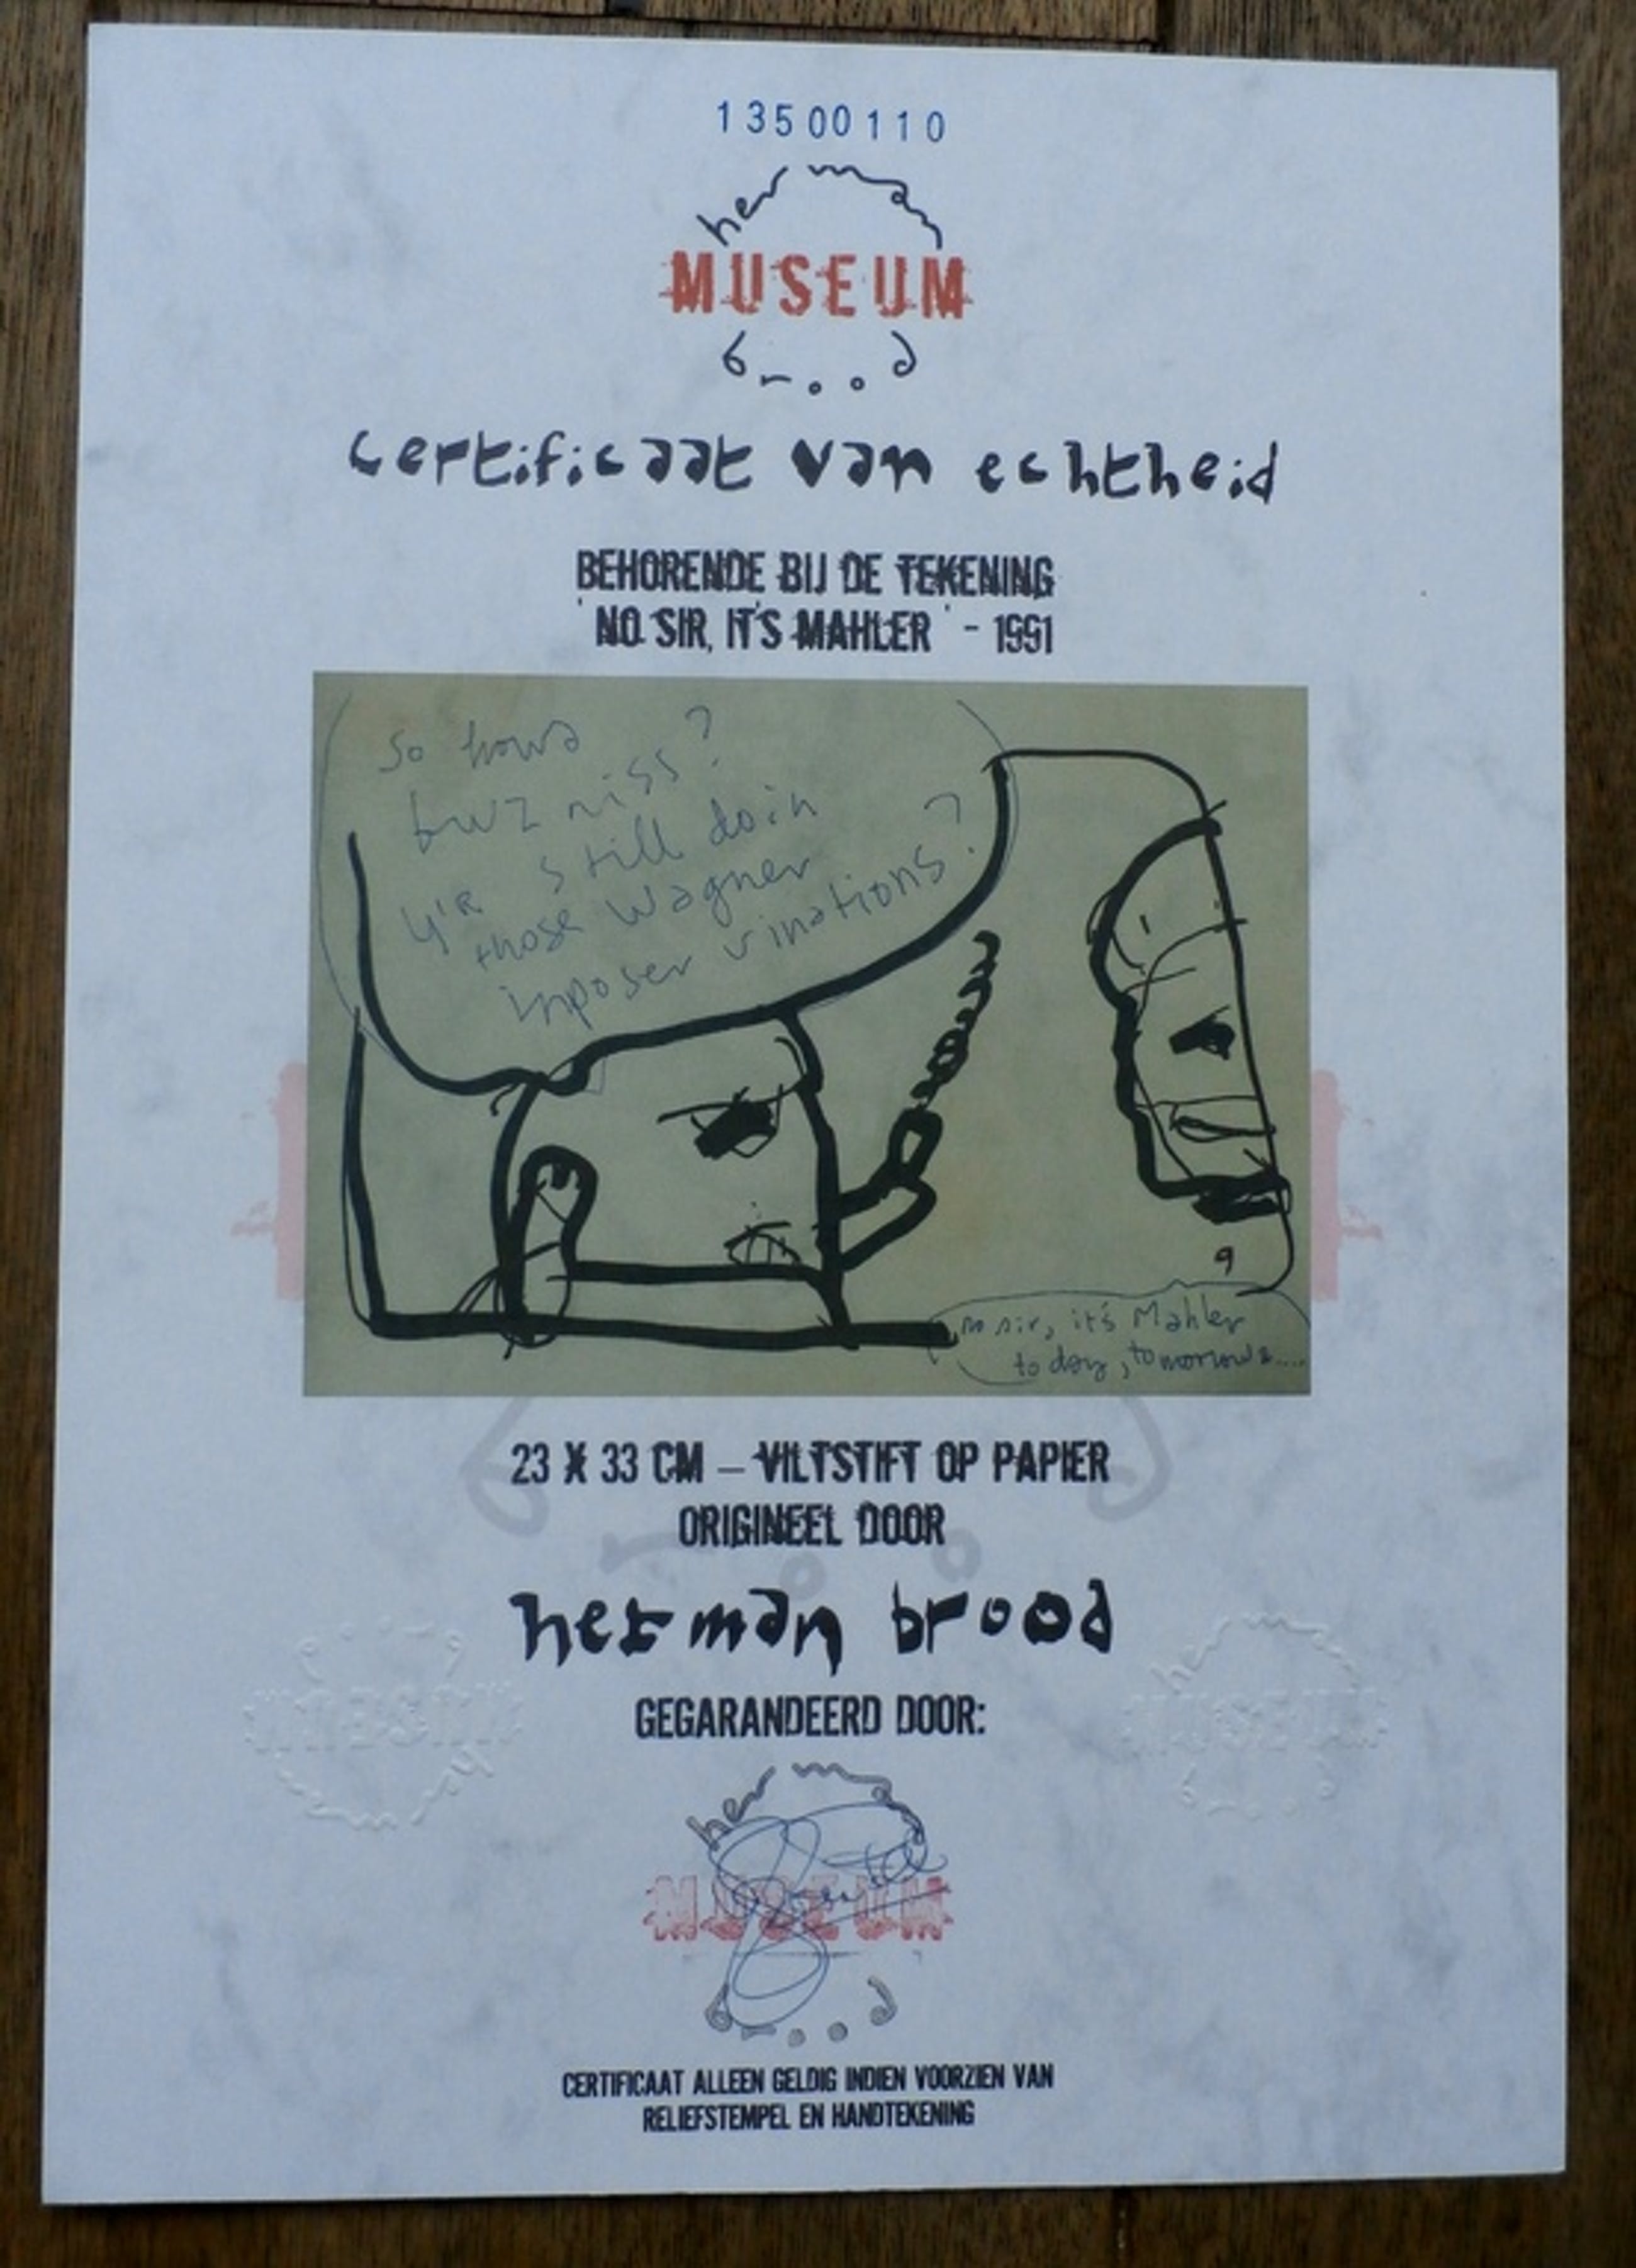 13500110
herman
MUSEUM
brood
certificaat van echtheid
BEHORENDE BIJ DE TEKENING
'NO SIR, IT'S MAHLER' - 1991
So hows
buzniss?
y'R still doin
those Wagner
imposer vinations?
no sir, it's Mahler
today, tomorrow
23 X 33 CM – VILTSTIFT OP PAPIER
ORIGINEEL DOOR
herman brood
GEGARANDEERD DOOR:
MUSEUM
MUSEUM
herman
MUSEUM
brood
CERTIFICAAT ALLEEN GELDIG INDIEN VOORZIEN VAN
RELIEFSTEMPEL EN HANDTEKENING